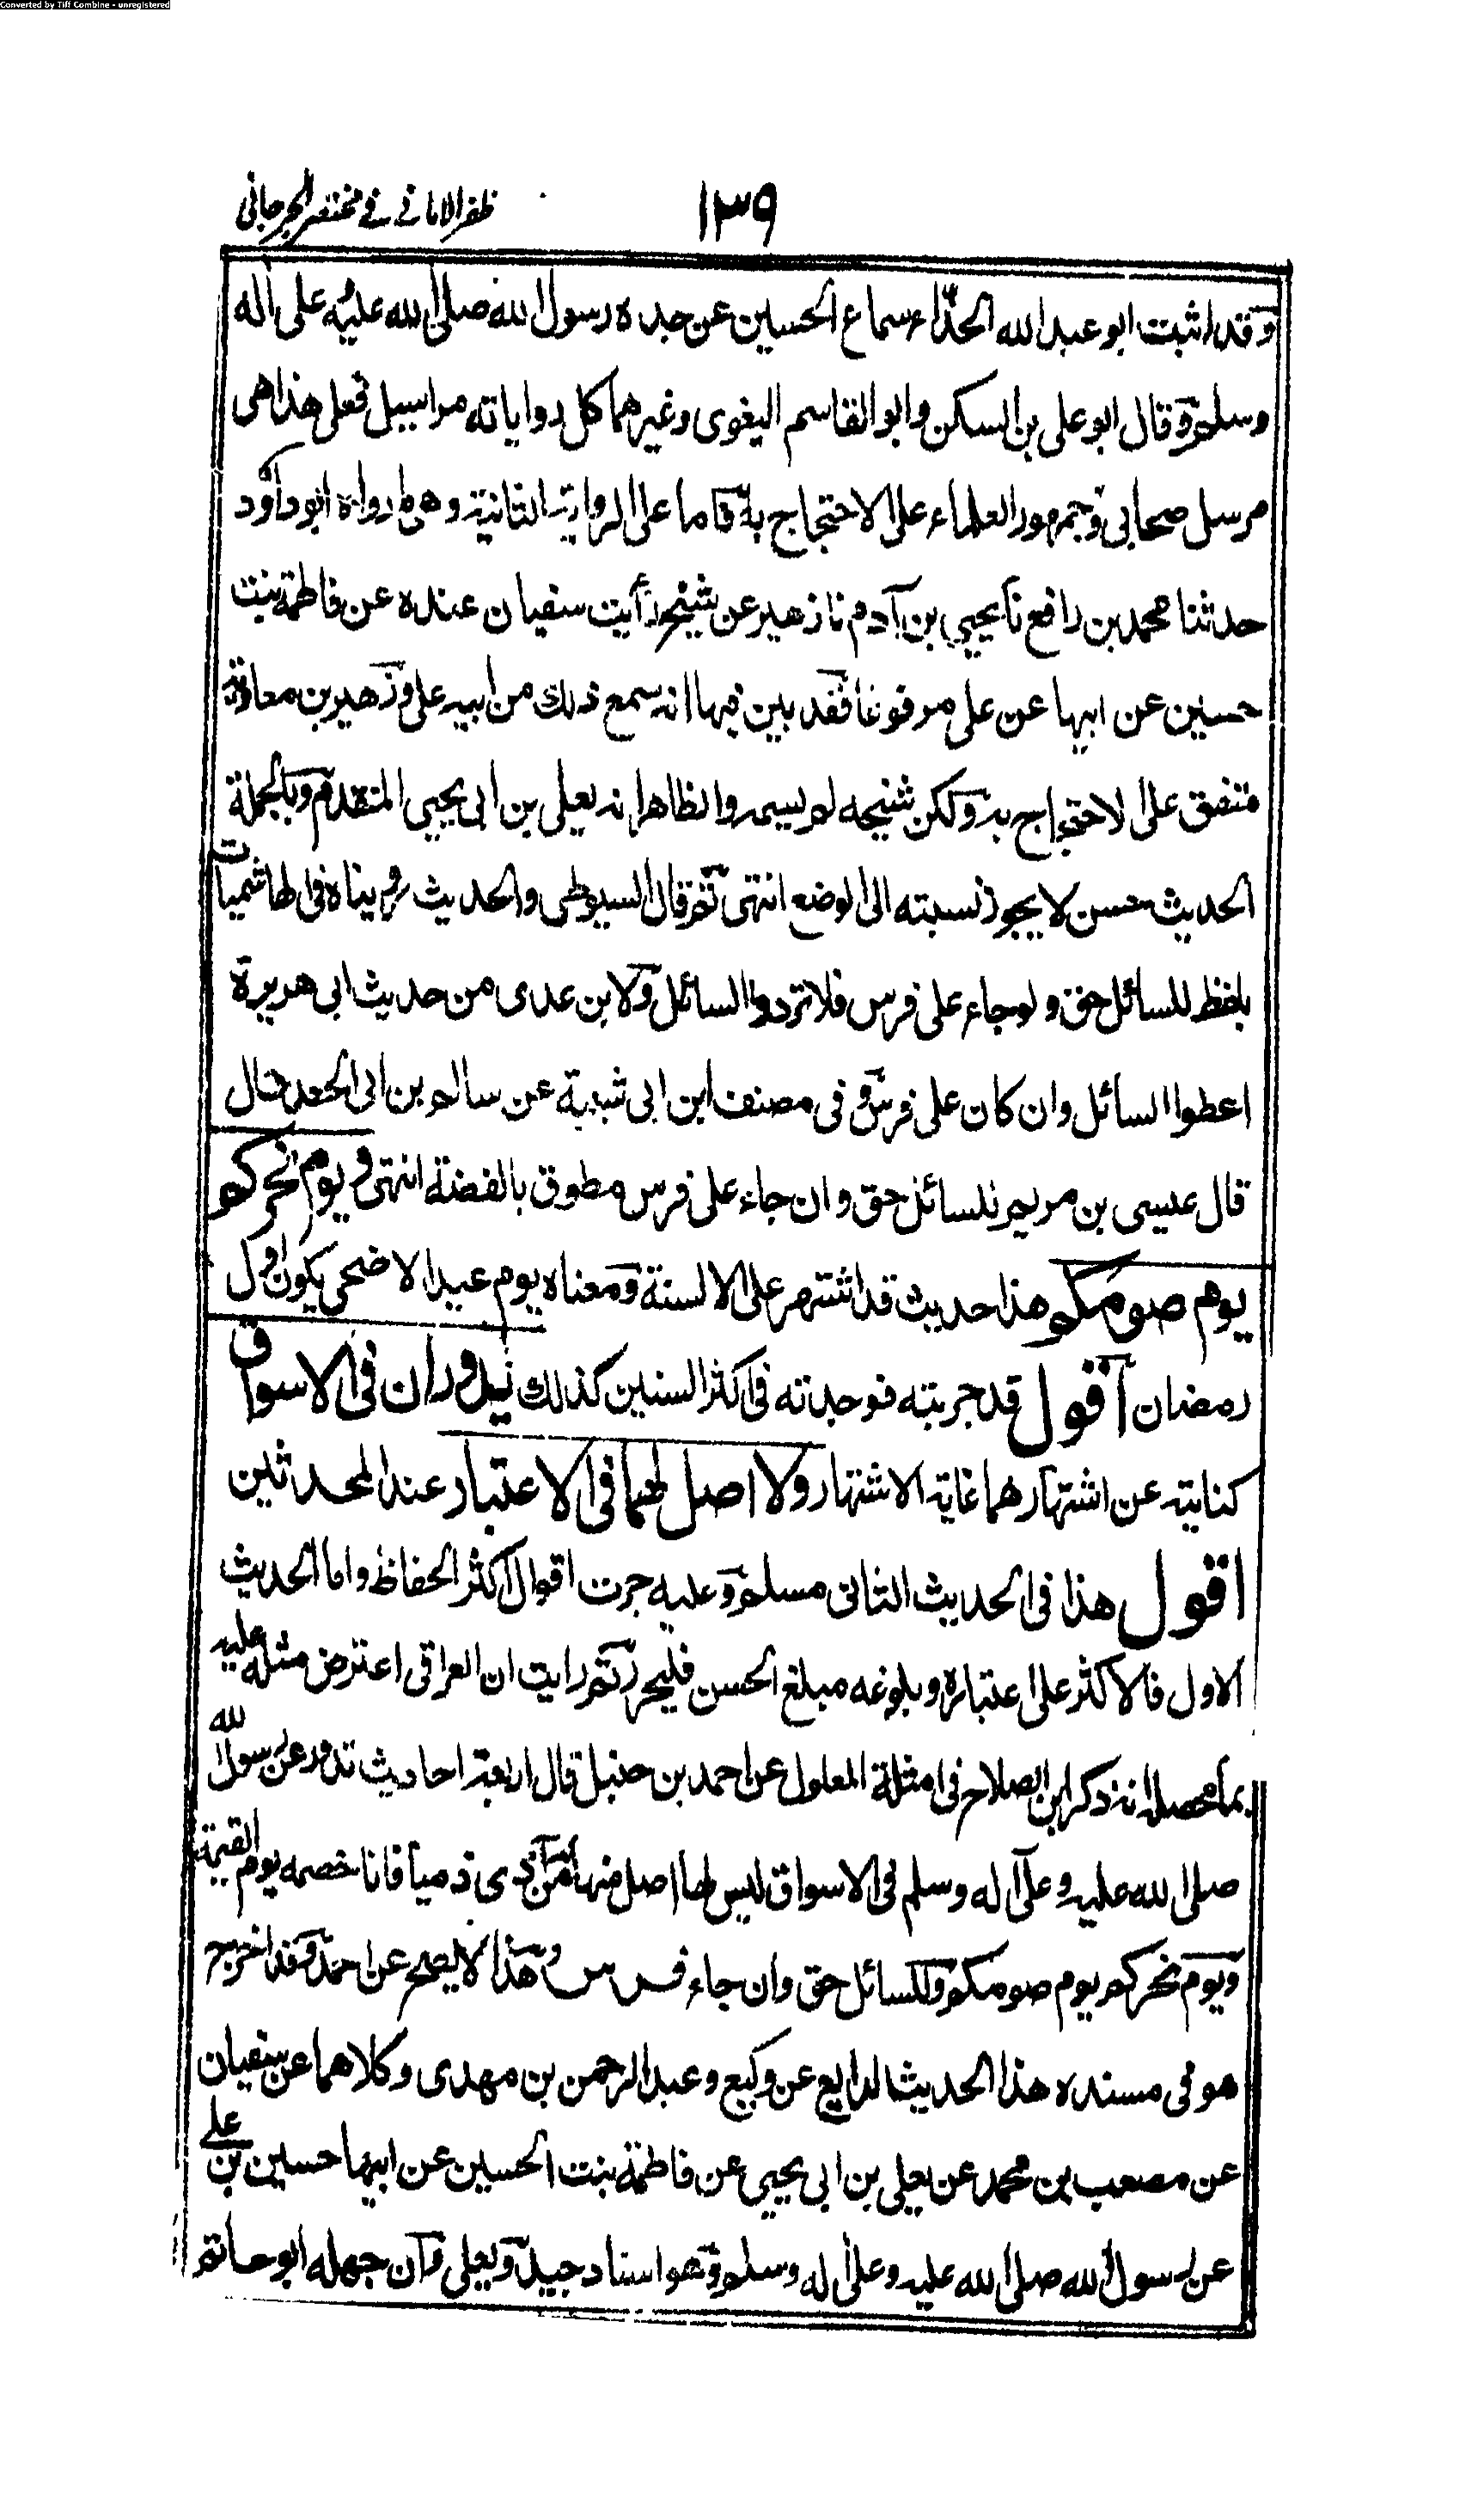 Converted by Tiff Combine - unregistered
١٣٩ ظفر الامانی فی مختصر الجرجانی
وقد اثبت ابو عبد الله الحذّاء سماع الحسين عن جده رسول الله صلى الله عليه على اله
وسلم وقال ابو على بن السكن وابو القاسم البغوى وغيرهما كل رواياته مراسيل فعلى هذا هى
مرسل صحابى وجمهور العلماء على الاحتجاج به فاما على الرواية الثانية وهى ما رواه ابو داود
حدثنا محمد بن رافع نا يحيى بن آدم نا زهير عن شيخ رأيت سفيان عنده عن فاطمة بنت
حسين عن ابيها عن على مرفوعا فقد بين فيها انه سمع ذلك من ابيه على وزهير بن معاوية
متفق على الاحتجاج به ولكن شيخه لم يسمه والظاهر انه يعلى بن ابى يحيى المتقدم وبالجملة
الحديث حسن لا يجوز نسبته الى الوضع انتهى ثم قال السيوطى والحديث رويناه فى الهاشميات
بلفظ للسائل حق ولو جاء على فرس فلا تردوا السائل ولابن عدى من حديث ابى هريرة
اعطوا السائل وان كان على فرس وفى مصنف ابن ابى شيبة عن سالم بن ابى الجعد قال
قال عيسى بن مريم للسائل حق وان جاء على فرس مطوق بالفضة انتهى ويوم نحركم
يوم صومكم هذا حديث قد اشتهر على الالسنة ومعناه يوم عيد الاضحى يكون اول
رمضان اقول قد جربته فوجدته فى اكثر السنين كذلك يدوران فى الاسواق
كناية عن اشتهارهما غاية الاشتهار ولا اصل لهما فى الاعتبار عند المحدثين
اقول هذا فى الحديث الثانى مسلم وعليه جرت اقوال اكثر الحفاظ واما الحديث
الاول فالاكثر على اعتباره وبلوغه مبلغ الحسن فليحرر ثم رايت ان العراقى اعترض مثله عليه
بما محصله انه ذكر ابن الصلاح فى امثلة المعلول عن احمد بن حنبل قال اربعة احاديث تدور عن رسول الله
صلى الله عليه وعلى اله وسلم فى الاسواق ليس لها اصل منها من آذى ذميا فانا خصمه يوم القيمة
ويوم نحركم يوم صومكم وللسائل حق وان جاء فرس وهذا لا يصح عن احمد وقد اخرج
هو فى مسنده هذا الحديث الرابع عن وكيع وعبد الرحمن بن مهدى وكلاهما عن سفيان
عن مصعب بن محمد عن يعلى بن ابى يحيى عن فاطمة بنت الحسين عن ابيها حسين بن على
عن رسول الله صلى الله عليه وعلى اله وسلم وهو اسناد جيد ويعلى وان جهله ابو حاتم